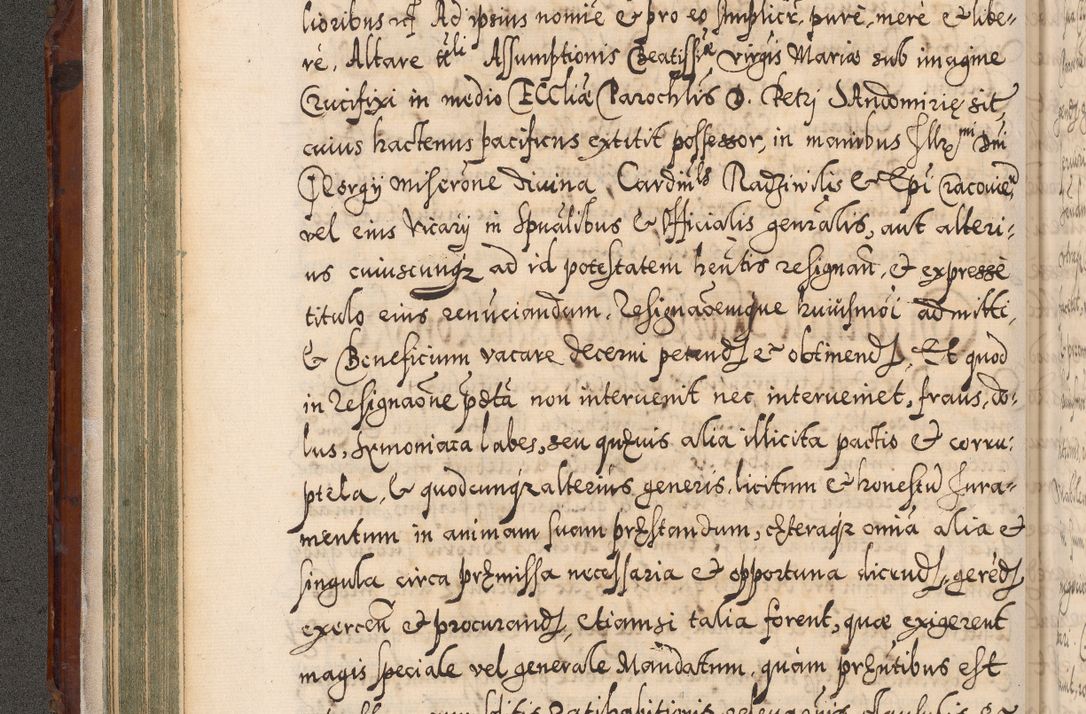 lioribus Ad ipsius nomie & pro eo Implicr. purè, merè & libe-
rè, Altare tt̃li Assumptionis Beatissę virgis Mariæ sub imagine
Crucifixi in medio ECCliæ Parochlis D. Petri SAndomirię sit,
cuius hactenus pacificus extitit possessor, in manibus Illr̃mi Dñi
Georgij miserõne divina Cardinls Radziwilis & Epi Cracovien̄,
vel eius Vicarij in Spũalibus & Officialis genrãlis, aut alteri-
us cuiuscunqz ad id potestatem hen̄tis resignan̄, & expressè
titulo eius renunciandum, Resignaõemque huiusmõi admitti,
& Beneficium vacare decerni petend & obtinend, Et quod
in Resignaõne pdta non intervenit nec interveniet, fraus, do-
lus, Symoniaca labes, seu quęvis alia illicita pactio & corru-
ptela, & quodcunqz alterius generis, licitum & honestũ Iura-
mentum in animam suam pręstandum, cęteraqz omia alia &
singula circa pręmissa necessaria & opportuna dicend, gerẽd
exercen̄ & procurand, Etiamsi talia forent, quæ exigerent
magis speciale vel generale Mandatum, quam pręntibus est